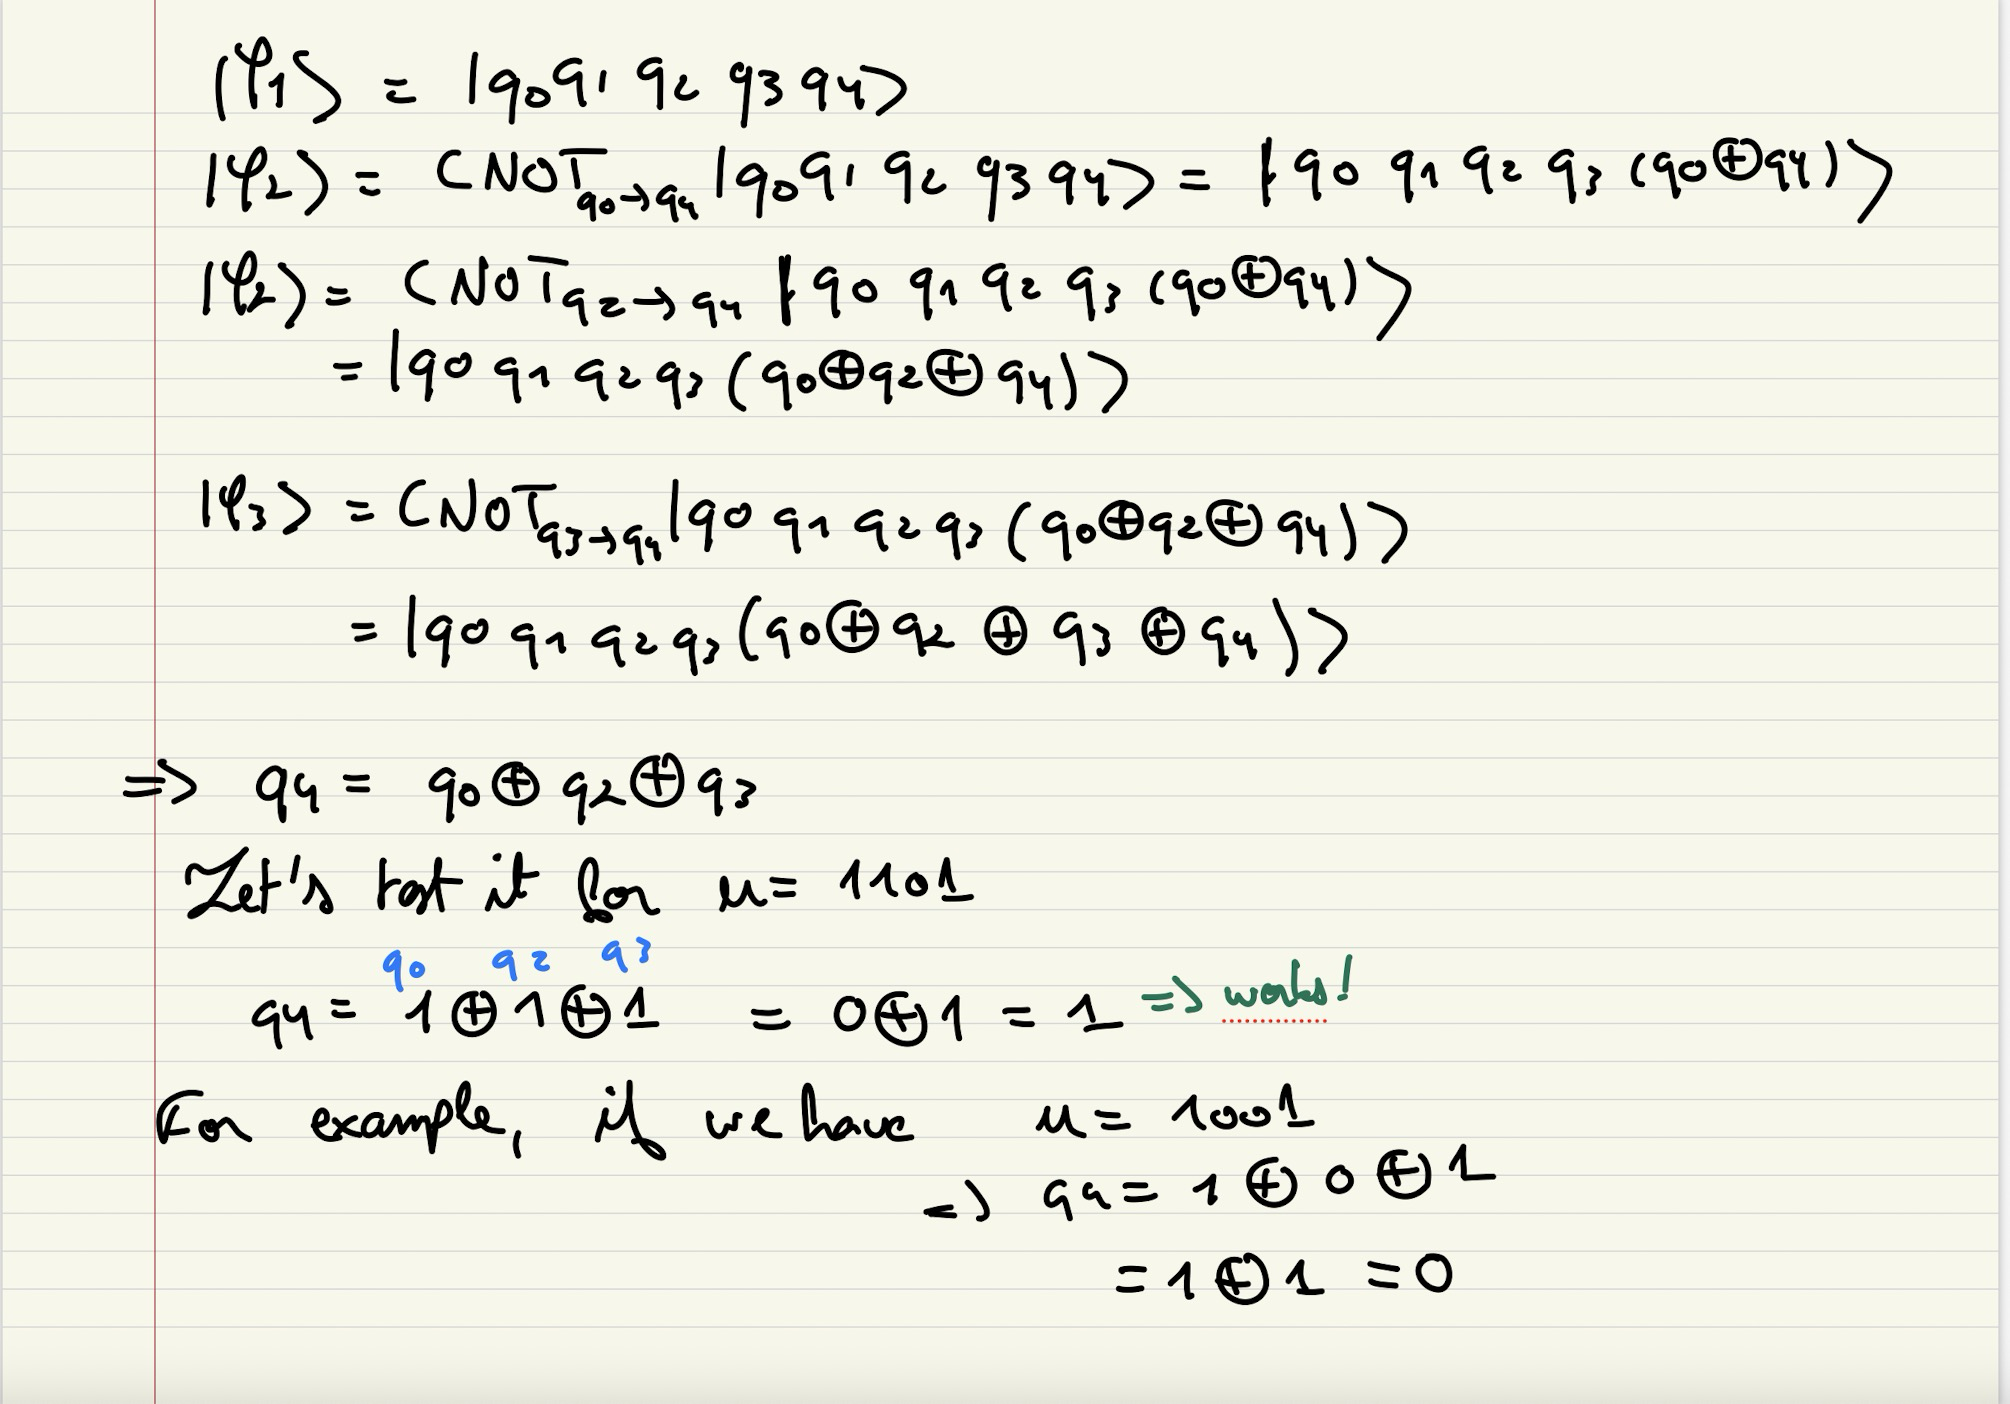 |φ1⟩ = |q0 q1 q2 q3 q4⟩
|φ2⟩ = CNOT q0→q4 |q0 q1 q2 q3 q4⟩ = |q0 q1 q2 q3 (q0⊕q4)⟩
|φ2⟩ = CNOT q2→q4 |q0 q1 q2 q3 (q0⊕q4)⟩
= |q0 q1 q2 q3 (q0⊕q2⊕q4)⟩
|φ3⟩ = CNOT q3→q4 |q0 q1 q2 q3 (q0⊕q2⊕q4)⟩
= |q0 q1 q2 q3 (q0⊕q2⊕q3⊕q4)⟩
=> q4 = q0⊕q2⊕q3
Let's test it for u = 1101
q0 q2 q3
q4 = 1⊕1⊕1 = 0⊕1 = 1 => works!
For example, if we have u = 1001
=> q4 = 1⊕0⊕1
= 1⊕1 = 0